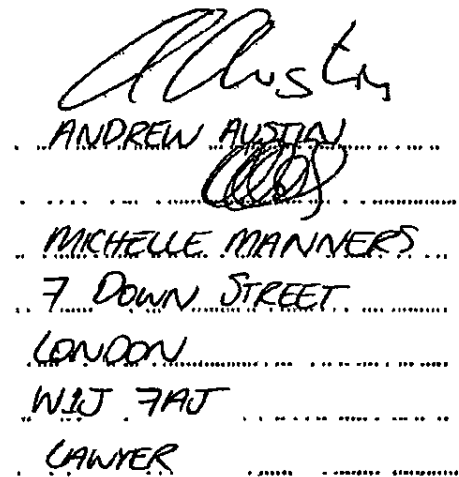 A Austin
ANDREW AUSTIN
MICHELLE MANNERS
7 DOWN STREET
LONDON
W1J 7AJ
LAWYER